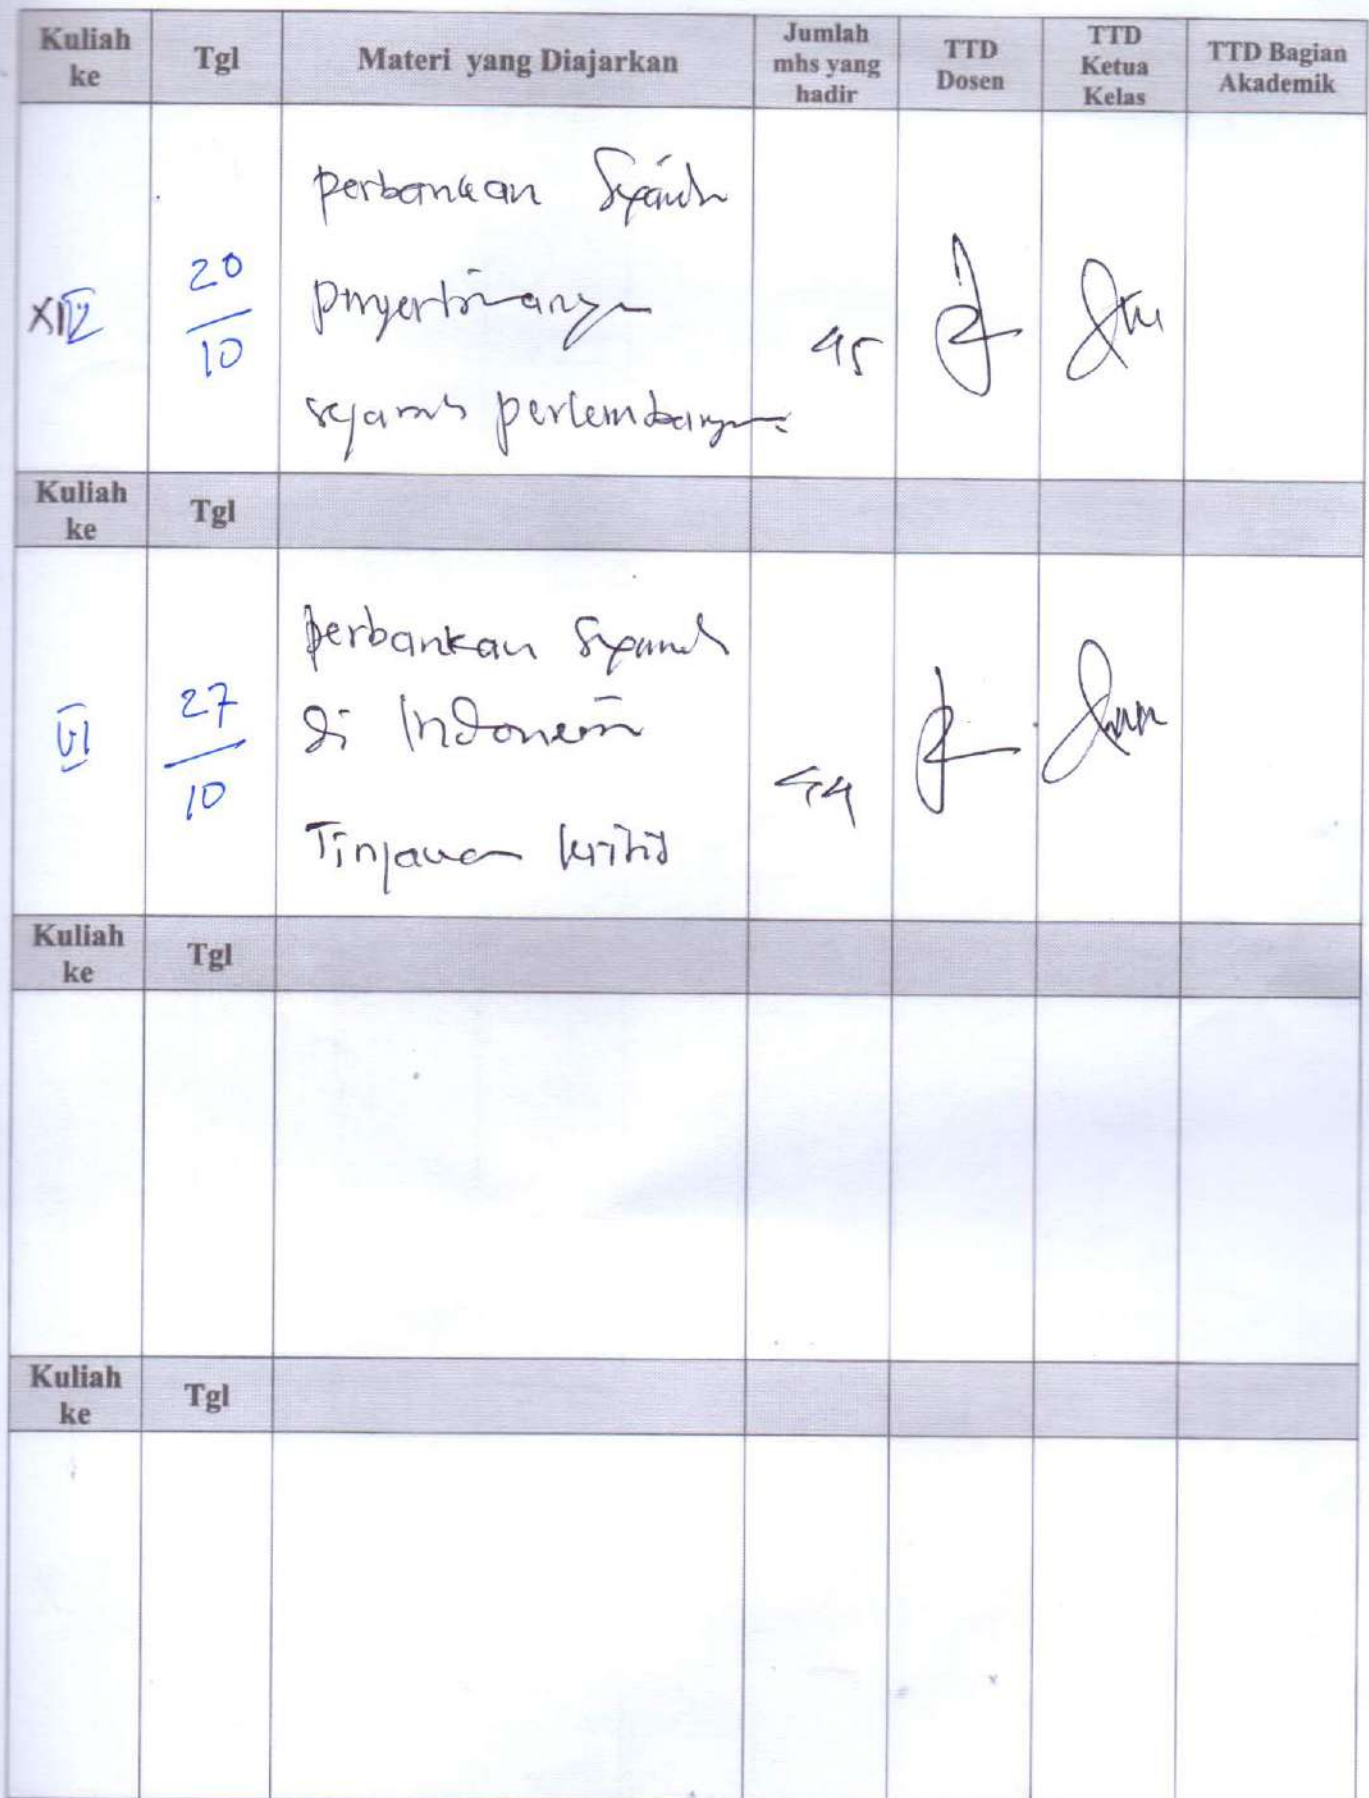 Kuliah ke Tgl Materi yang Diajarkan Jumlah mhs yang hadir TTD Dosen TTD Ketua Kelas TTD Bagian Akademik
perbankan Syariah
20
10
45
sejarah perkembangan
Kuliah ke Tgl
perbankan Syariah
VI 27
10
di Indonesia
44
Tinjauan kritis
Kuliah ke Tgl
Kuliah ke Tgl